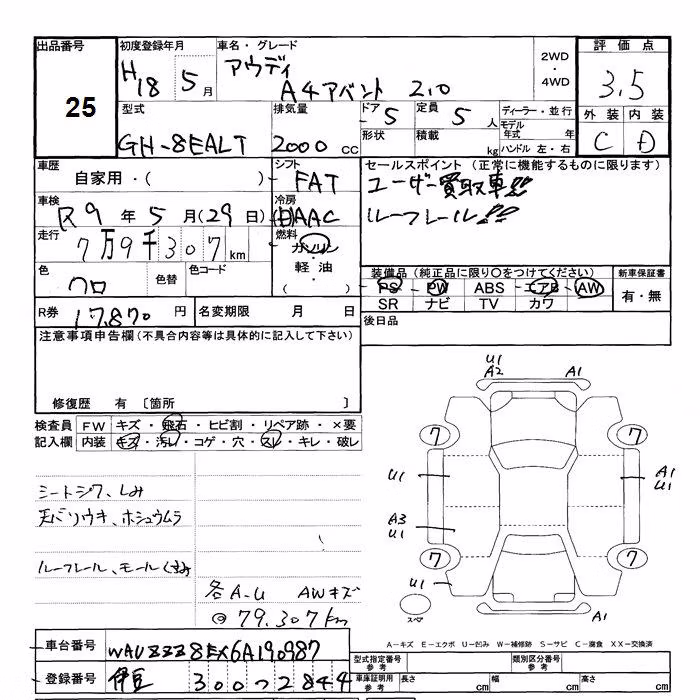 出品番号 初度登録年月 車名・グレード 2WD・4WD 評価点
25 H18 5月 アウディ A4アバント 2.0 3.5
型式 排気量 ドア 5 定員 5人 ディーラー・並行 外装 内装
GH-8EALT 2000cc 形状 積載 kg モデル年式 年 ハンドル 左・右 C D
車歴 シフト セールスポイント (正常に機能するものに限ります)
自家用・( ) FAT ユーザー買取車!!!
車検 R9年5月(29日) 冷房 AAC ルーフレール!!!
走行 7万9千307km 燃料 ガソリン・軽油・( )
色 クロ 色替 色コード 装備品(純正品に限り○をつけてください) 新車保証書
PS PW ABS エアB AW 有・無
SR ナビ TV カワ
R券 17,870円 名変期限 月 日 後日品
注意事項申告欄(不具合内容等は具体的に記入して下さい)
修復歴 有 〔箇所 〕
検査員記入欄 FW キズ・飛石・ヒビ割・リペア跡・×要
内装 キズ・汚レ・コゲ・穴・スレ・キレ・破レ
シートシワ、しみ
天バリウキ、ホシュウムラ
ルーフレール、モールくもり
各A-U AWキズ
◎79.307km
U1
A2 A1
7 7
U1 A1
U1
A3
U1
7 7
U1
スペア A1
A-キズ E-エクボ U-凹み W-補修跡 S-サビ C-腐食 XX-交換済
車台番号 WAUZZZ8EX6A190987
型式指定番号参考 類別区分番号参考
登録番号 伊豆 300 つ 2844
車庫証明用参考 長さ cm 幅 cm 高さ cm